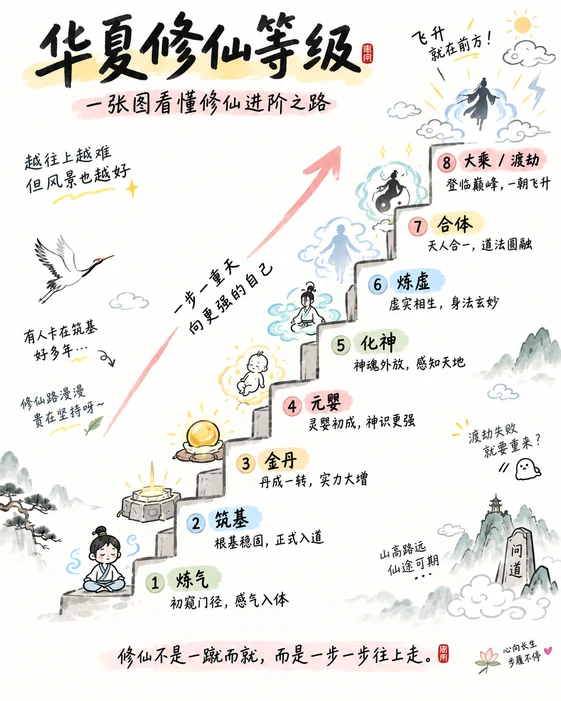 华夏修仙等级
一张图看懂修仙进阶之路
飞升
就在前方!
越往上越难
但风景也越好
8 大乘 / 渡劫
登临巅峰,一朝飞升
7 合体
天人合一,道法圆融
一步一重天
向更强的自己
6 炼虚
虚实相生,身法玄妙
有人卡在筑基
好多年...
5 化神
神魂外放,感知天地
修仙路漫漫
贵在坚持呀~
4 元婴
灵婴初成,神识更强
渡劫失败
就要重来?
3 金丹
丹成一转,实力大增
2 筑基
根基稳固,正式入道
山高路远
仙途可期
...
问道
1 炼气
初窥门径,感气入体
修仙不是一蹴而就,而是一步一步往上走。
心向长生
步履不停